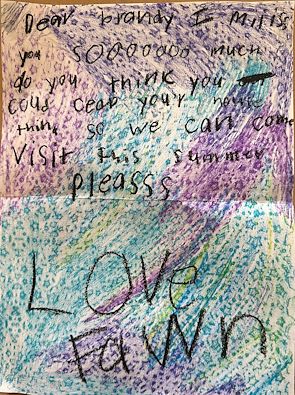 Dear brandy I miiss
you sooooooo much
do you think you
coud ceap your house
thing so we can come
visit this summer
pleasss
Love
Fawn